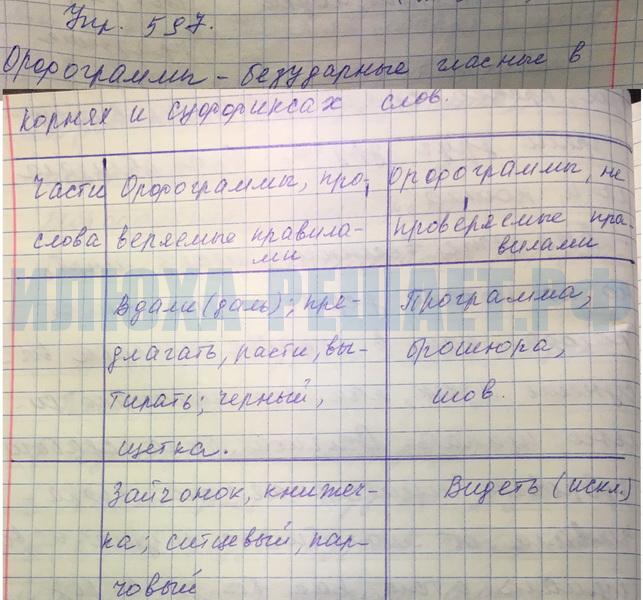 Упр. 597.
Орфограммы - безударные гласные в
корнях и суффиксах слов.
Части
слова
Орфограммы, про-
веряемые правила-
ми
Орфограммы, не
проверяемые пра-
вилами
Вдали (даль); пре-
длагать, расти, вы-
тирать; черный,
щетка.
Программа,
брошюра,
шов.
Зайчонок, книжеч-
ка; ситцевый, пар-
човый
Видеть (искл.)
ИЛЮХА РЕШАЕТ.РФ